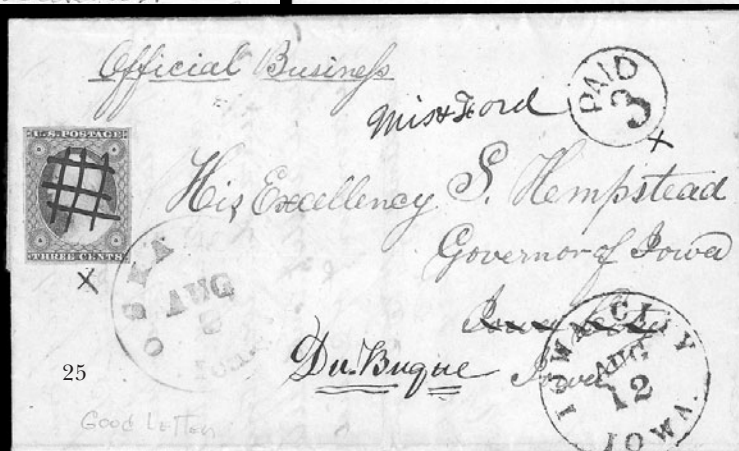 Official Business
PAID
3
Mis & Ford
x
U.S. POSTAGE
THREE CENTS
X
His Excellency S. Hempstead
Governor of Iowa
Iowa City
Du.Buque Iowa
OSKA
AUG
IOWA CITY
AUG
12
IOWA.
25
Good Letter